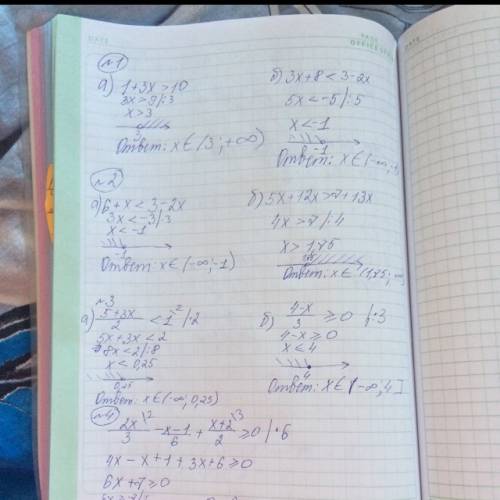 DATE
PAGE
OFFICE
№1
а) 1+3x>10
3x>9/:3
x>3
3
Ответ: x∈(3;+∞)
б) 3x+8<3-2x
5x<-5/:5
x<-1
-1
Ответ: x∈(-∞;-1
№2
а) 6+x<3-2x
3x<-3/:3
x<-1
-1
Ответ: x∈(-∞;-1)
б) 5x+12x>7+13x
4x>7/:4
x>1,75
Ответ: x∈(1,75;
№3
а) 5+3x/2 <1 /·2
5x+3x<2
8x<2/:8
x<0,25
0,25
Ответ: x∈(-∞;0,25)
б) 4-x/3 ≥0 /·3
4-x≥0
x≤4
4
Ответ: x∈(-∞;4]
№4
2x/3 - x-1/6 + x+2/2 ≥0/·6
4x-x+1+3x+6≥0
6x+7≥0